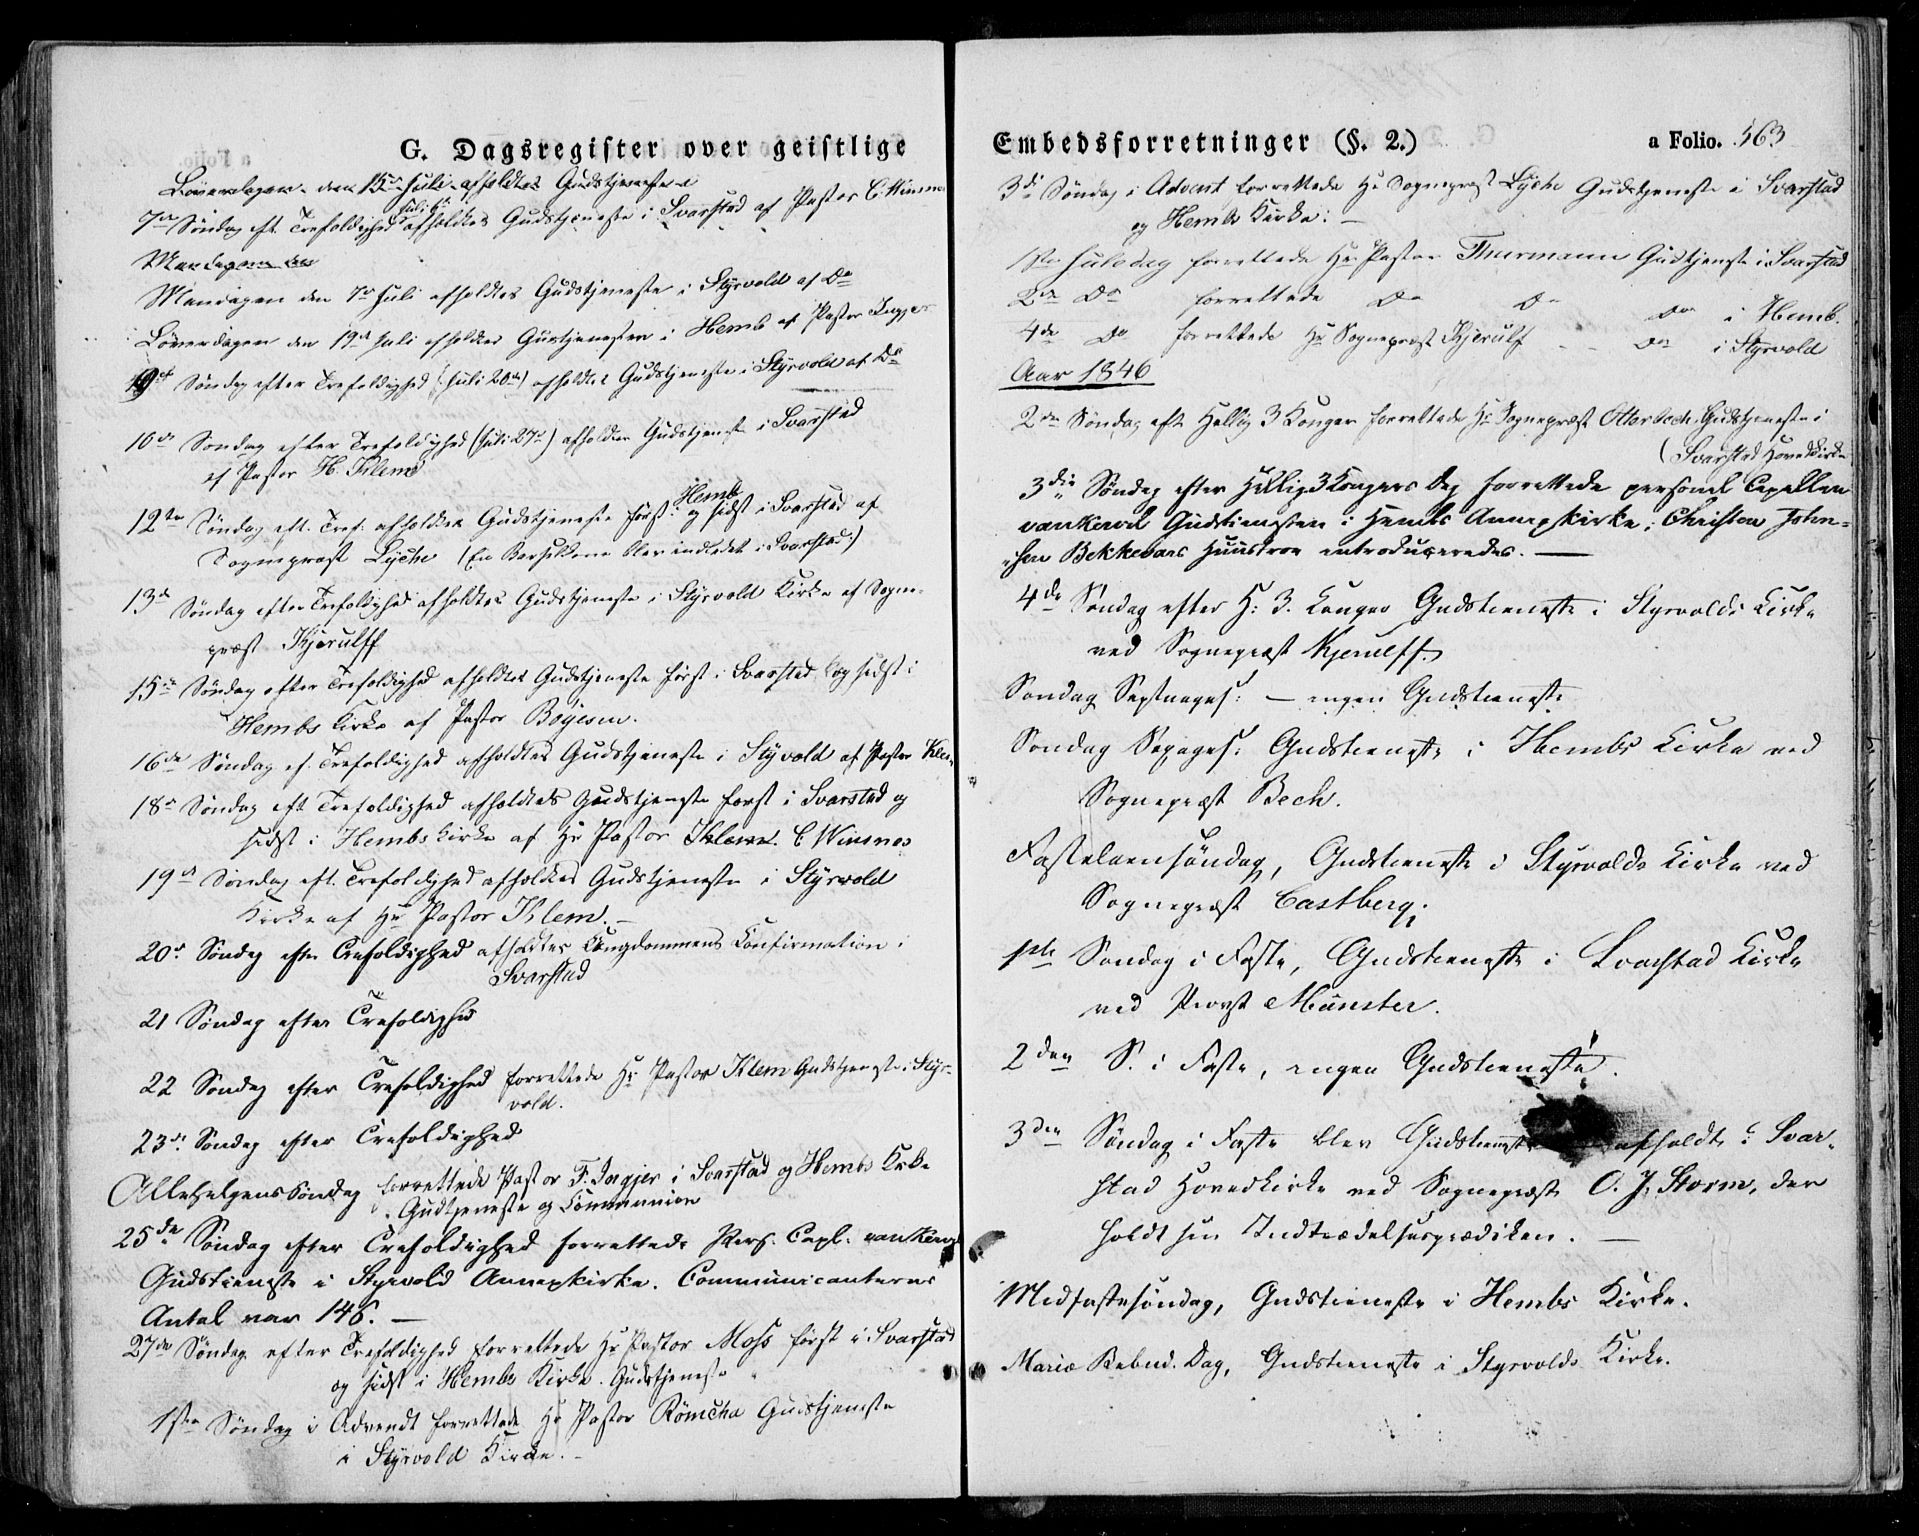 G. Dagsregister over geistlige
Löverdagen den 15de Juli afholdtes Gudstjeneste
7de Søndag eft. Trefoldighed Juli 6te afholdtes Gudstjeneste i Svarstad af Pastor C. Winsnes
Mandagen den
Mandagen den 7de Juli afholdtes Gudstjeneste i Styrvold af Do
Löverdagen den 19de Juli afholdtes Gudstjenesten i Hemb af Pastor Ingjer
9de Søndag efter Trefoldighed (Juli 20de) afholdtes Gudstjeneste i Styrvold af Do
10de Søndag efter Trefoldighed (Juli 27de) afholdtes Gudstjeneste i Svarstad
af Pastor H. Klem
12te Søndag eft. Tref. afholdtes Gudstjeneste först i Hemb og sidst i Svarstad af
Sognepræst Lyche (En Barselkone blev indledet i Svarstad)
13de Søndag efter Trefoldighed afholdtes Gudstjeneste i Styrvold Kirke af Sogne-
præst Kjerulff
15de Søndag efter Trefoldighed afholdtes Gudstjeneste først i Svarstad og sidst i
Hembs Kirke af Pastor Boyesen.
16de Søndag ef. Trefoldighed afholdtes Gudstjeneste i Styrvold af Pastor Klem
18de Søndag eft Trefoldighed afholdtes Gudstjeneste først i Svarstad og
sidst i Hembs Kirke af Hr Pastor Klem. C Winsnes
19de Søndag eft. Trefoldighed afholdtes Gudstjeneste i Styrvold
Kirke af Hr Pastor Klem. –
20de Søndag efter Trefoldighed afholdtes Ungdommens Confirmation i
Svarstad
21 Søndag efter Trefoldighed
22 Søndag efter Trefoldighed forrettede Hr Pastor Klem Gudstjeneste i Styr-
vold.
23de Søndag efter Trefoldighed
Allehelgens Søndag forrettede Pastor F. Ingjer i Svarstad og Hembs Kirke
Gudtjeneste og Communion
25de Søndag efter Trefoldighed forrettede Pers. Capl. van Kervel
Gudstieneste i Styrvold Annexkirke. Communicanternes
Antal var 146. —
27de Søndag efter Trefoldighed forrettede Hr Pastor Moss først i Svarstad
og sidst i Hembs Kirke Gudstjeneste
1ste Søndag i Advendt forrettede Hr Pastor Römcke Gudstjeneste
i Styrvold Kirke. –
Embedsforretninger (§. 2.)
a Folio. 563
3de Søndag i Advent forrettede Hr Sognepræst Lyche Gudstjeneste i Svarstad
og Hembs Kirke: –
1ste Juledag forrettede Hr Pastor Thurmann Gudtjenste i Svarstad
2den Do forrettede Do Do Do i Hemb.
4de Do forrettede Hr Sognepræst Kjerulf – – Do i Styrvold
Aar 1846
2den Søndag eft Hellig 3 Konger forrettede Hr Sognepræst Otterbech Gudstjeneste i
(Svarstad Hovedkirke
3die Søndag efter Hellig 3 Kongers Dag forrettede personel Capellan
van Kervel Gudstienesten i Hembs Annexkirke; Christen John-
sen Bekkevars Huustroe introduceredes. —
4de Søndag efter H: 3. Konger Gudstieneste i Styrvolds Kirke
ved Sognepræst Kjerulff.
Søndag Septuages: — ingen Gudstieneste
Søndag Sexages: Gudstieneste i Hembs Kirke ved
Sognepræst Bech.
Fastelavensöndag, Gudstieneste i Styrvolds Kirke ved
Sognepræst Castberg.
1ste Søndag i Faste, Gudstieneste i Svarstad Kirke
ved Provst Münster.
2den S. i Faste, ingen Gudstieneste.
3die Søndag i Faste blev Gudstieneste afholdt i Svar-
stad Hovedkirke ved Sognepræst O. J. Storm, der
holdt sin Indtrædelsesprædiken. —
Midfastesöndag, Gudstieneste i Hembs Kirke.
Mariæ Bebud. Dag, Gudstieneste i Styrvolds Kirke.